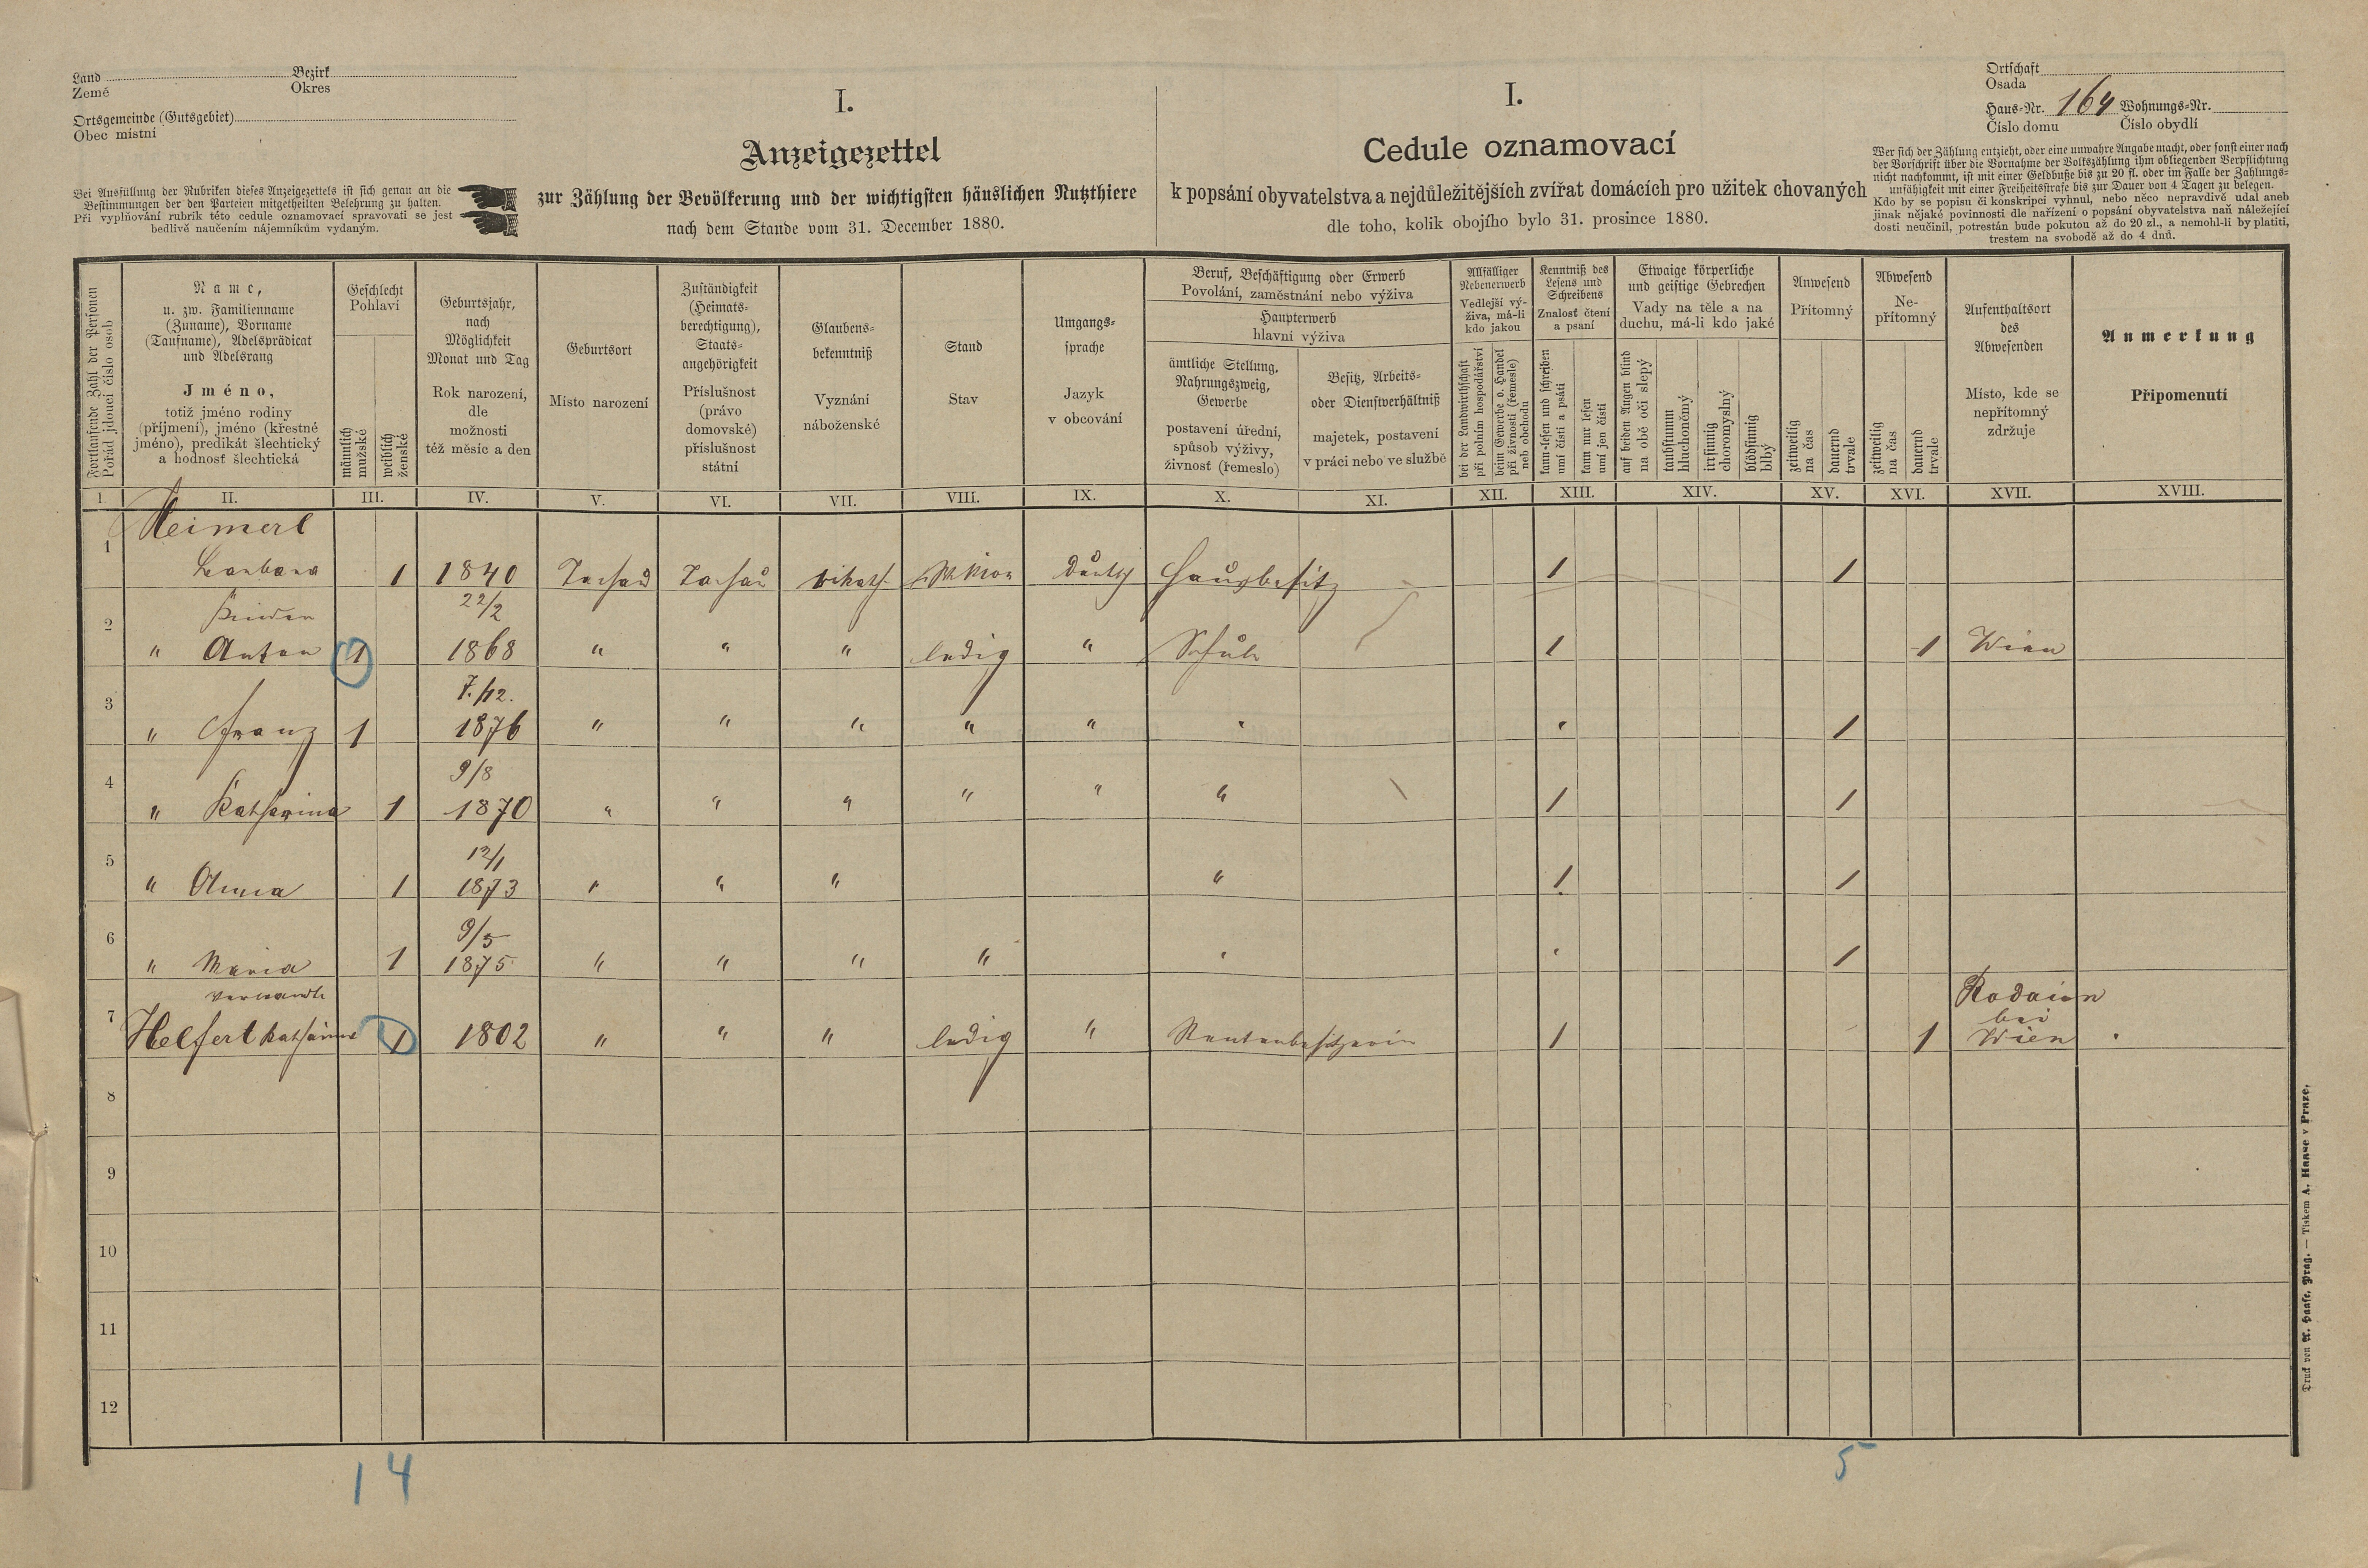 Land Bezirk
Země Okres
Ortsgemeinde (Gutsgebiet)
Obec místní
Bei Ausfüllung der Rubriken dieses Anzeigezettels ist sich genau an die
Bestimmungen der den Parteien mitgetheilten Belehrung zu halten.
Při vyplňování rubrik této cedule oznamovací spravovati se jest
bedlivě naučením nájemníkům vydaným.
I.
Anzeigezettel
zur Zählung der Bevölkerung und der wichtigsten häuslichen Nutzthiere
nach dem Stande vom 31. December 1880.
I.
Cedule oznamovací
k popsání obyvatelstva a nejdůležitějších zvířat domácích pro užitek chovaných
dle toho, kolik obojího bylo 31. prosince 1880.
Ortschaft
Osada
Haus-Nr. 164 Wohnungs-Nr.
Číslo domu Číslo obydlí
Wer sich der Zählung entzieht, oder eine unwahre Angabe macht, oder sonst einer nach
der Vorschrift über die Vornahme der Volkszählung ihm obliegenden Verpflichtung
nicht nachkommt, ist mit einer Geldbuße bis zu 20 fl. oder im Falle der Zahlungs-
unfähigkeit mit einer Freiheitsstrafe bis zur Dauer von 4 Tagen zu belegen.
Kdo by se popisu či konskripci vyhnul, nebo něco nepravdivě udal aneb
jinak nějaké povinnosti dle nařízení o popsání obyvatelstva naň náležející
dosti neučinil, potrestán bude pokutou až do 20 zl., a nemohl-li by platiti,
trestem na svobodě až do 4 dnů.
Fortlaufende Zahl der Personen
Pořád jdoucí číslo osob
Name,
u. zw. Familienname
(Zuname), Vorname
(Taufname), Adelsprädicat
und Adelsrang
Jméno,
totiž jméno rodiny
(příjmení), jméno (křestné
jméno), predikát šlechtický
a hodnosť šlechtická
Geschlecht
Pohlaví
männlich
mužské
weiblich
ženské
Geburtsjahr,
nach
Möglichkeit
Monat und Tag
Rok narození,
dle
možnosti
též měsíc a den
Geburtsort
Místo narození
Zuständigkeit
(Heimats-
berechtigung),
Staats-
angehörigkeit
Příslušnost
(právo
domovské)
příslušnost
státní
Glaubens-
bekenntniß
Vyznání
náboženské
Stand
Stav
Umgangs-
sprache
Jazyk
v obcování
Beruf, Beschäftigung oder Erwerb
Povolání, zaměstnání nebo výživa
Haupterwerb
hlavní výživa
ämtliche Stellung,
Nahrungszweig,
Gewerbe
postavení úřední,
spůsob výživy,
živnosť (řemeslo)
Besitz, Arbeits-
oder Dienstverhältniß
majetek, postavení
v práci nebo ve službě
Allfälliger
Nebenerwerb
Vedlejší vý-
živa, má-li
kdo jakou
bei der Landwirthschaft
při polním hospodářství
beim Gewerbe o. Handel
při živnosti (řemesle)
neb obchodu
Kenntniß des
Lesens und
Schreibens
Znalosť čtení
a psaní
kann lesen und schreiben
umí čísti a psáti
kann nur lesen
umí jen čísti
Etwaige körperliche
und geistige Gebrechen
Vady na těle a na
duchu, má-li kdo jaké
auf beiden Augen blind
na obě oči slepý
taubstumm
hluchoněmý
irrsinnig
choromyslný
blödsinnig
blbý
Anwesend
Přítomný
zeitweilig
na čas
dauernd
trvale
Abwesend
Ne-
přítomný
zeitweilig
na čas
dauernd
trvale
Aufenthaltsort
des
Abwesenden
Místo, kde se
nepřítomný
zdržuje
Anmerkung
Připomenutí
I. II. III. IV. V. VI. VII. VIII. IX. X. XI. XII. XIII. XIV. XV. XVI. XVII. XVIII.
1 Meimerl
Barbara 1 1840 Tachau Tachau r. kath. Witwe deutsch Hausbesitz 1 1
2 Kinder 22/2
" Anton 1 1868 " " " ledig " Schule 1 1 Wien
3 7./12.
" Franz 1 1876 " " " " " " " 1
4 9/8
" Katharina 1 1870 " " " " " " 1 1
5 12/1
" Anna 1 1873 " " " " 1 1
6 9/5
" Maria 1 1875 " " " " " " 1
7 Verwandte Rodaun
bei
Helfert Katharina 1 1802 " " " ledig " Rentenbesitzerin 1 1 Wien
8
9
10
11
12
1 4 5
Druck von A. Haase, Prag. — Tiskem A. Haase v Praze.